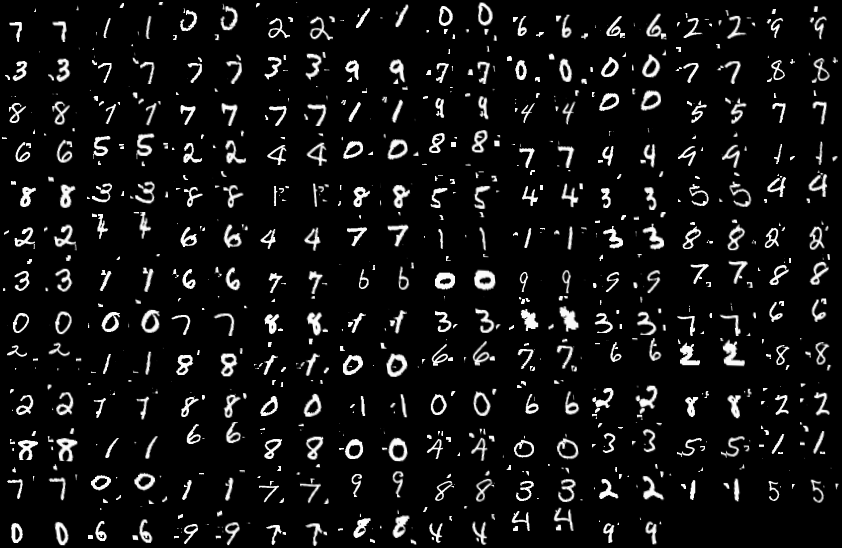 7 7 1 1 0 0 2 2 1 1 0 0 6 6 6 6 2 2 9 9
3 3 7 7 7 7 3 3 9 9 7 7 0 0 0 0 7 7 8 8
8 8 7 7 7 7 7 7 1 1 9 9 4 4 0 0 5 5 7 7
6 6 5 5 2 2 4 4 0 0 8 8 7 7 4 4 9 9 1 1
8 8 3 3 8 8 8 8 5 5 4 4 3 3 5 5 4 4
2 2 4 4 6 6 4 4 7 7 1 1 1 1 3 3 8 8 2 2
3 3 1 1 6 6 7 7 6 6 0 0 9 9 9 9 7 7 8 8
0 0 0 0 7 7 8 8 1 1 3 3 3 3 7 7 6 6
2 2 1 1 8 8 1 1 0 0 6 6 7 7 6 6 2 2 8 8
2 2 7 7 8 8 0 0 1 1 0 0 6 6 2 2 8 8 2 2
8 8 1 1 6 6 8 8 0 0 4 4 0 0 3 3 5 5 1 1
7 7 0 0 1 1 7 7 9 9 8 8 3 3 2 2 1 1 5 5
0 0 6 6 9 9 7 7 8 8 4 4 4 4 9 9